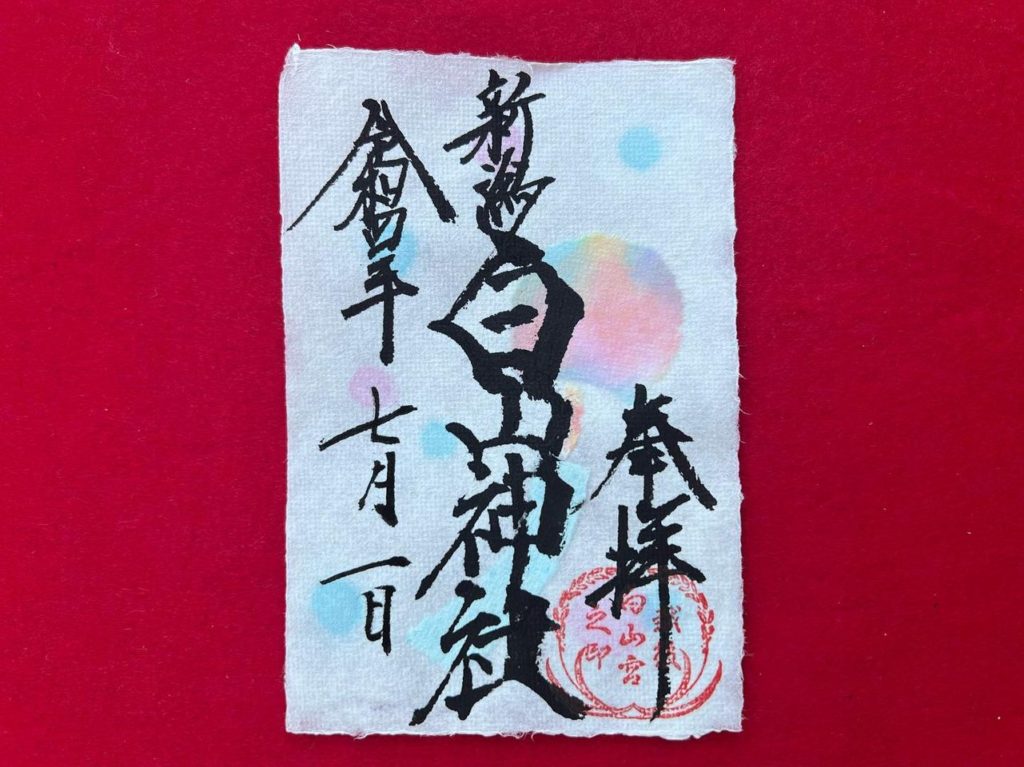 奉拝
新潟白山神社
令和四年七月一日
越後
白山宮
之印